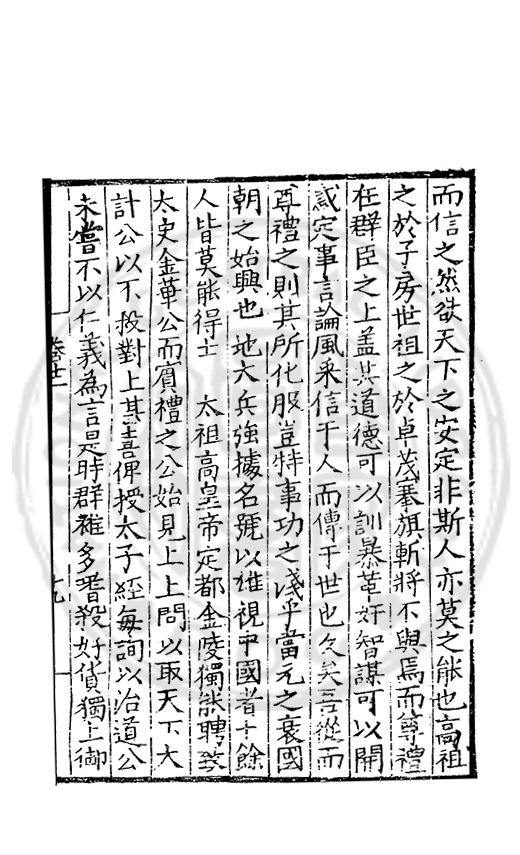 而信之然欲天下之安定非斯人亦莫之能也高祖
之於子房世祖之於卓茂搴旗斬將不與焉而尊禮
在群臣之上蓋其道德可以訓暴革奸智謀可以開
惑定事言論風采信于人而傳于世也久矣言從而
尊禮之則其所化服豈特事功之淺乎當元之衰國
朝之始興也地大兵強據名號以雄視中國者十餘
人皆莫能得士　太祖高皇帝定都金陵獨能聘致
太史金華公而賓禮之公始見上上問以取天下大
計公以不殺對上甚喜俾授太子經每詢以治道公
未嘗不以仁義為言是時群雄多嗜殺好貨獨上御